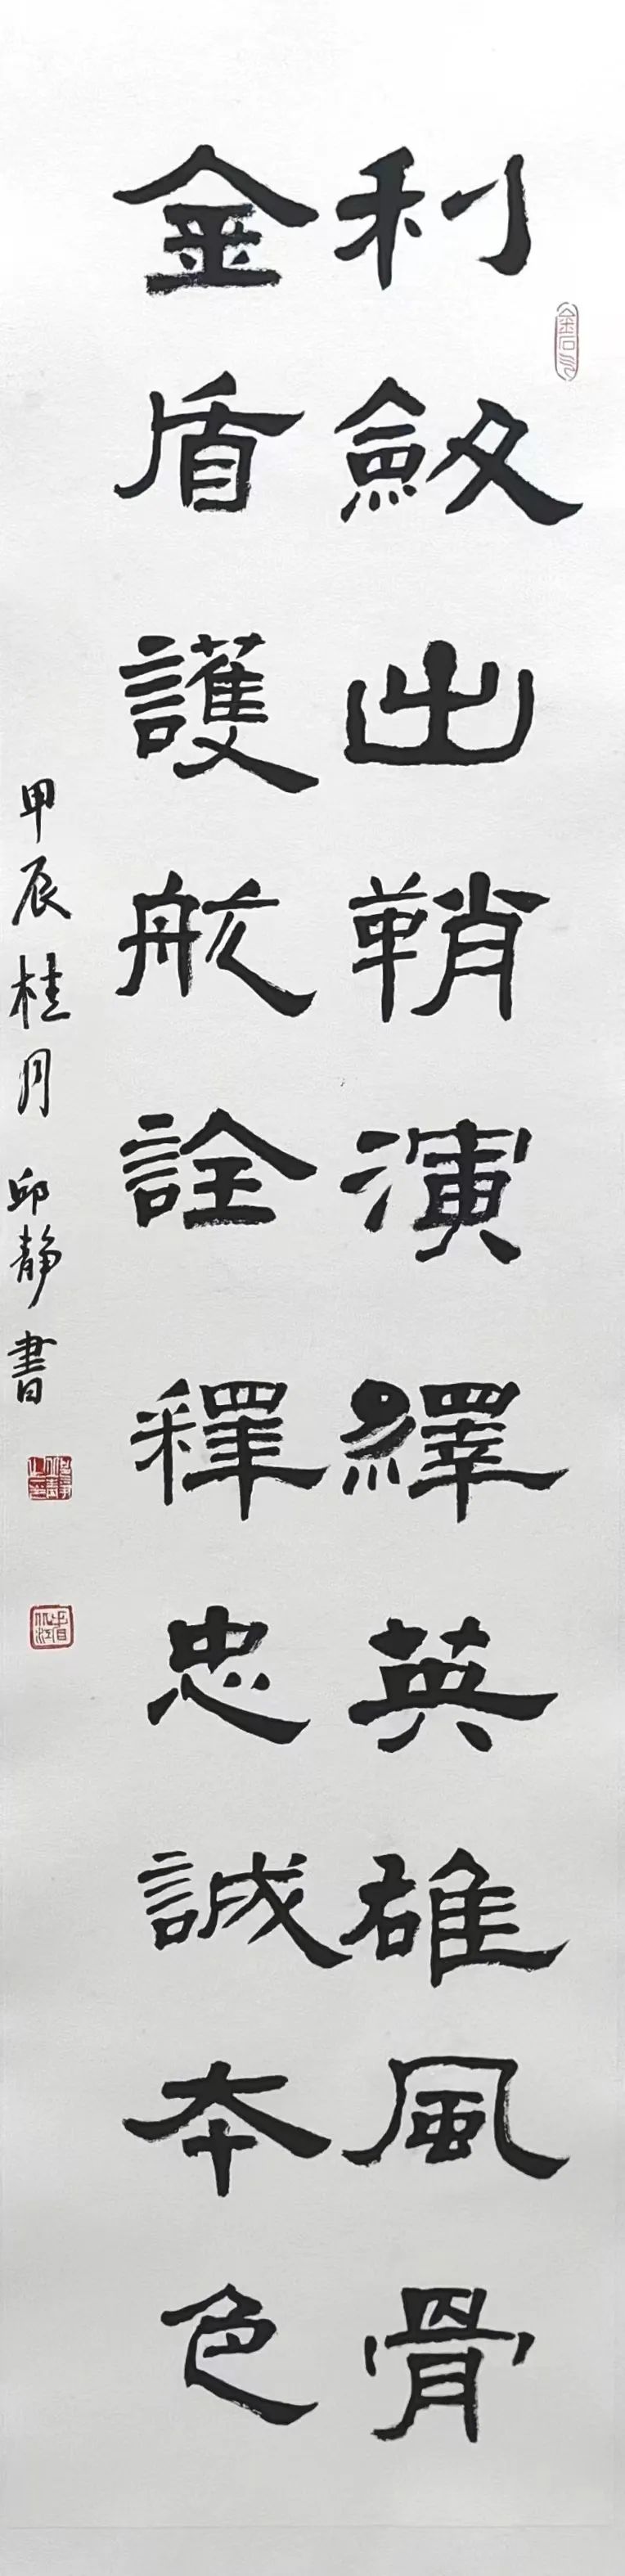 利斂出鞘演繹英雄風骨
金盾護航詮釋忠誠本色
甲辰桂月 邱静書